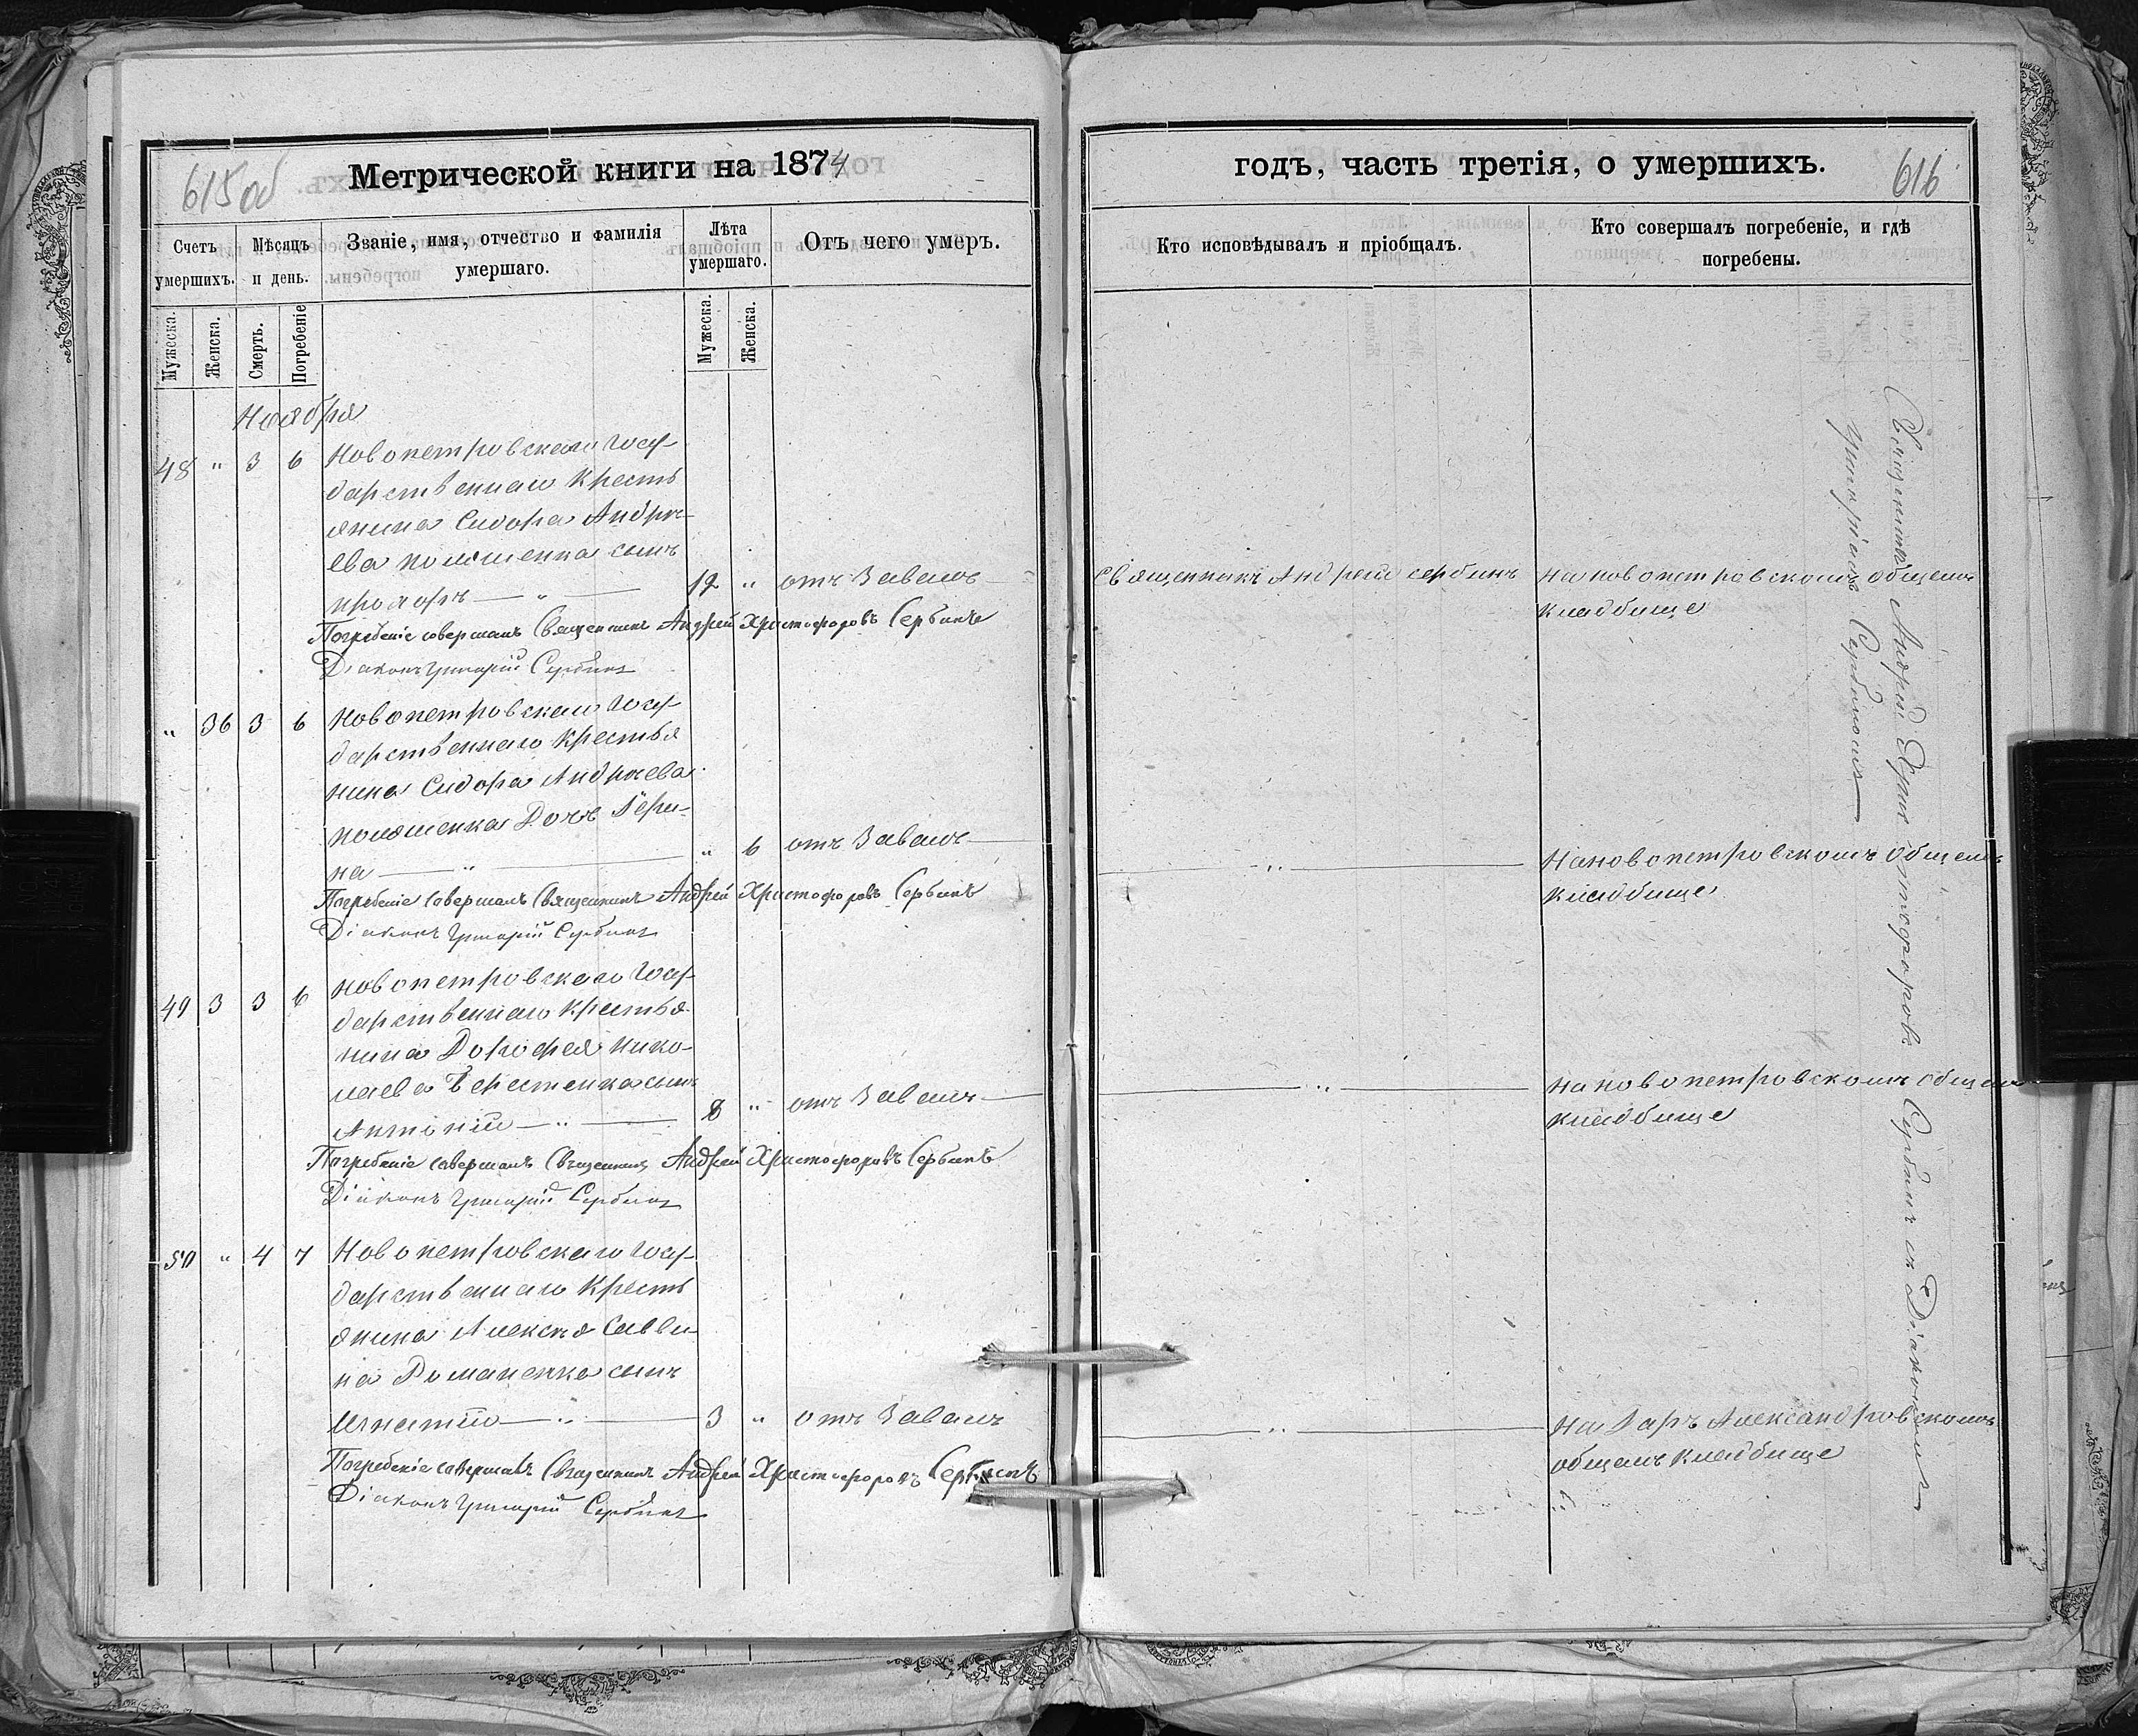 615 об
Метрической книги на 1874
Счетъ умершихъ.
Мѣсяцъ и день.
Званіе, имя, отчество и фамилія умершаго.
Лѣта умершаго.
Отъ чего умеръ.
Мужеска.
Женска.
Смерть.
Погребеніе
Мужеска.
Женска.
Ноября
48 " 3 6 Новопетровскаго Госу-
дарственнаго Кресть
янина Сидора Андре-
ева
сынъ
12 " отъ
Погребеніе совершалъ Священникъ Андрей Христофоровъ Сербинъ
Діаконъ Григорій Сербинъ
" 36 3 6 Новопетровскаго Госу-
дарственнаго Крестья
нина Сидора Андреева
Дочь
на — " — " 6 отъ
Погребеніе совершалъ Священникъ Андрей Христофоровъ Сербинъ
Діаконъ Григорій Сербинъ
49 3 3 6 Новопетровскаго Госу-
дарственнаго Крестья-
нина Дорофея Нико-
лаева сынъ
Антоній — " — 8 " отъ
Погребеніе совершалъ Священникъ Андрей Христофоровъ Сербинъ
Діаконъ Григорій Сербинъ
50 " 4 7 Новопетровскаго Госу-
дарственнаго Кресть
янина Алексѣя Савви-
на Романенка сынъ
Игнатій — " — 3 " отъ
Погребеніе совершалъ Священникъ Андрей Христофоровъ Сербинъ
Діаконъ Григорій Сербинъ
годъ, часть третія, о умершихъ.
616
Кто исповѣдывалъ и пріобщалъ.
Кто совершалъ погребеніе, и гдѣ погребены.
Священникъ Андрей Сербинъ На новопетровскомъ общемъ
кладбище
— " — На новопетровскомъ общемъ
кладбище
— " — На новопетровскомъ общемъ
кладбище
— " — На Александровскомъ
общемъ кладбище
Священникъ Андрей Христофоровъ Сербинъ съ Діакономъ
Григоріемъ Сербиномъ